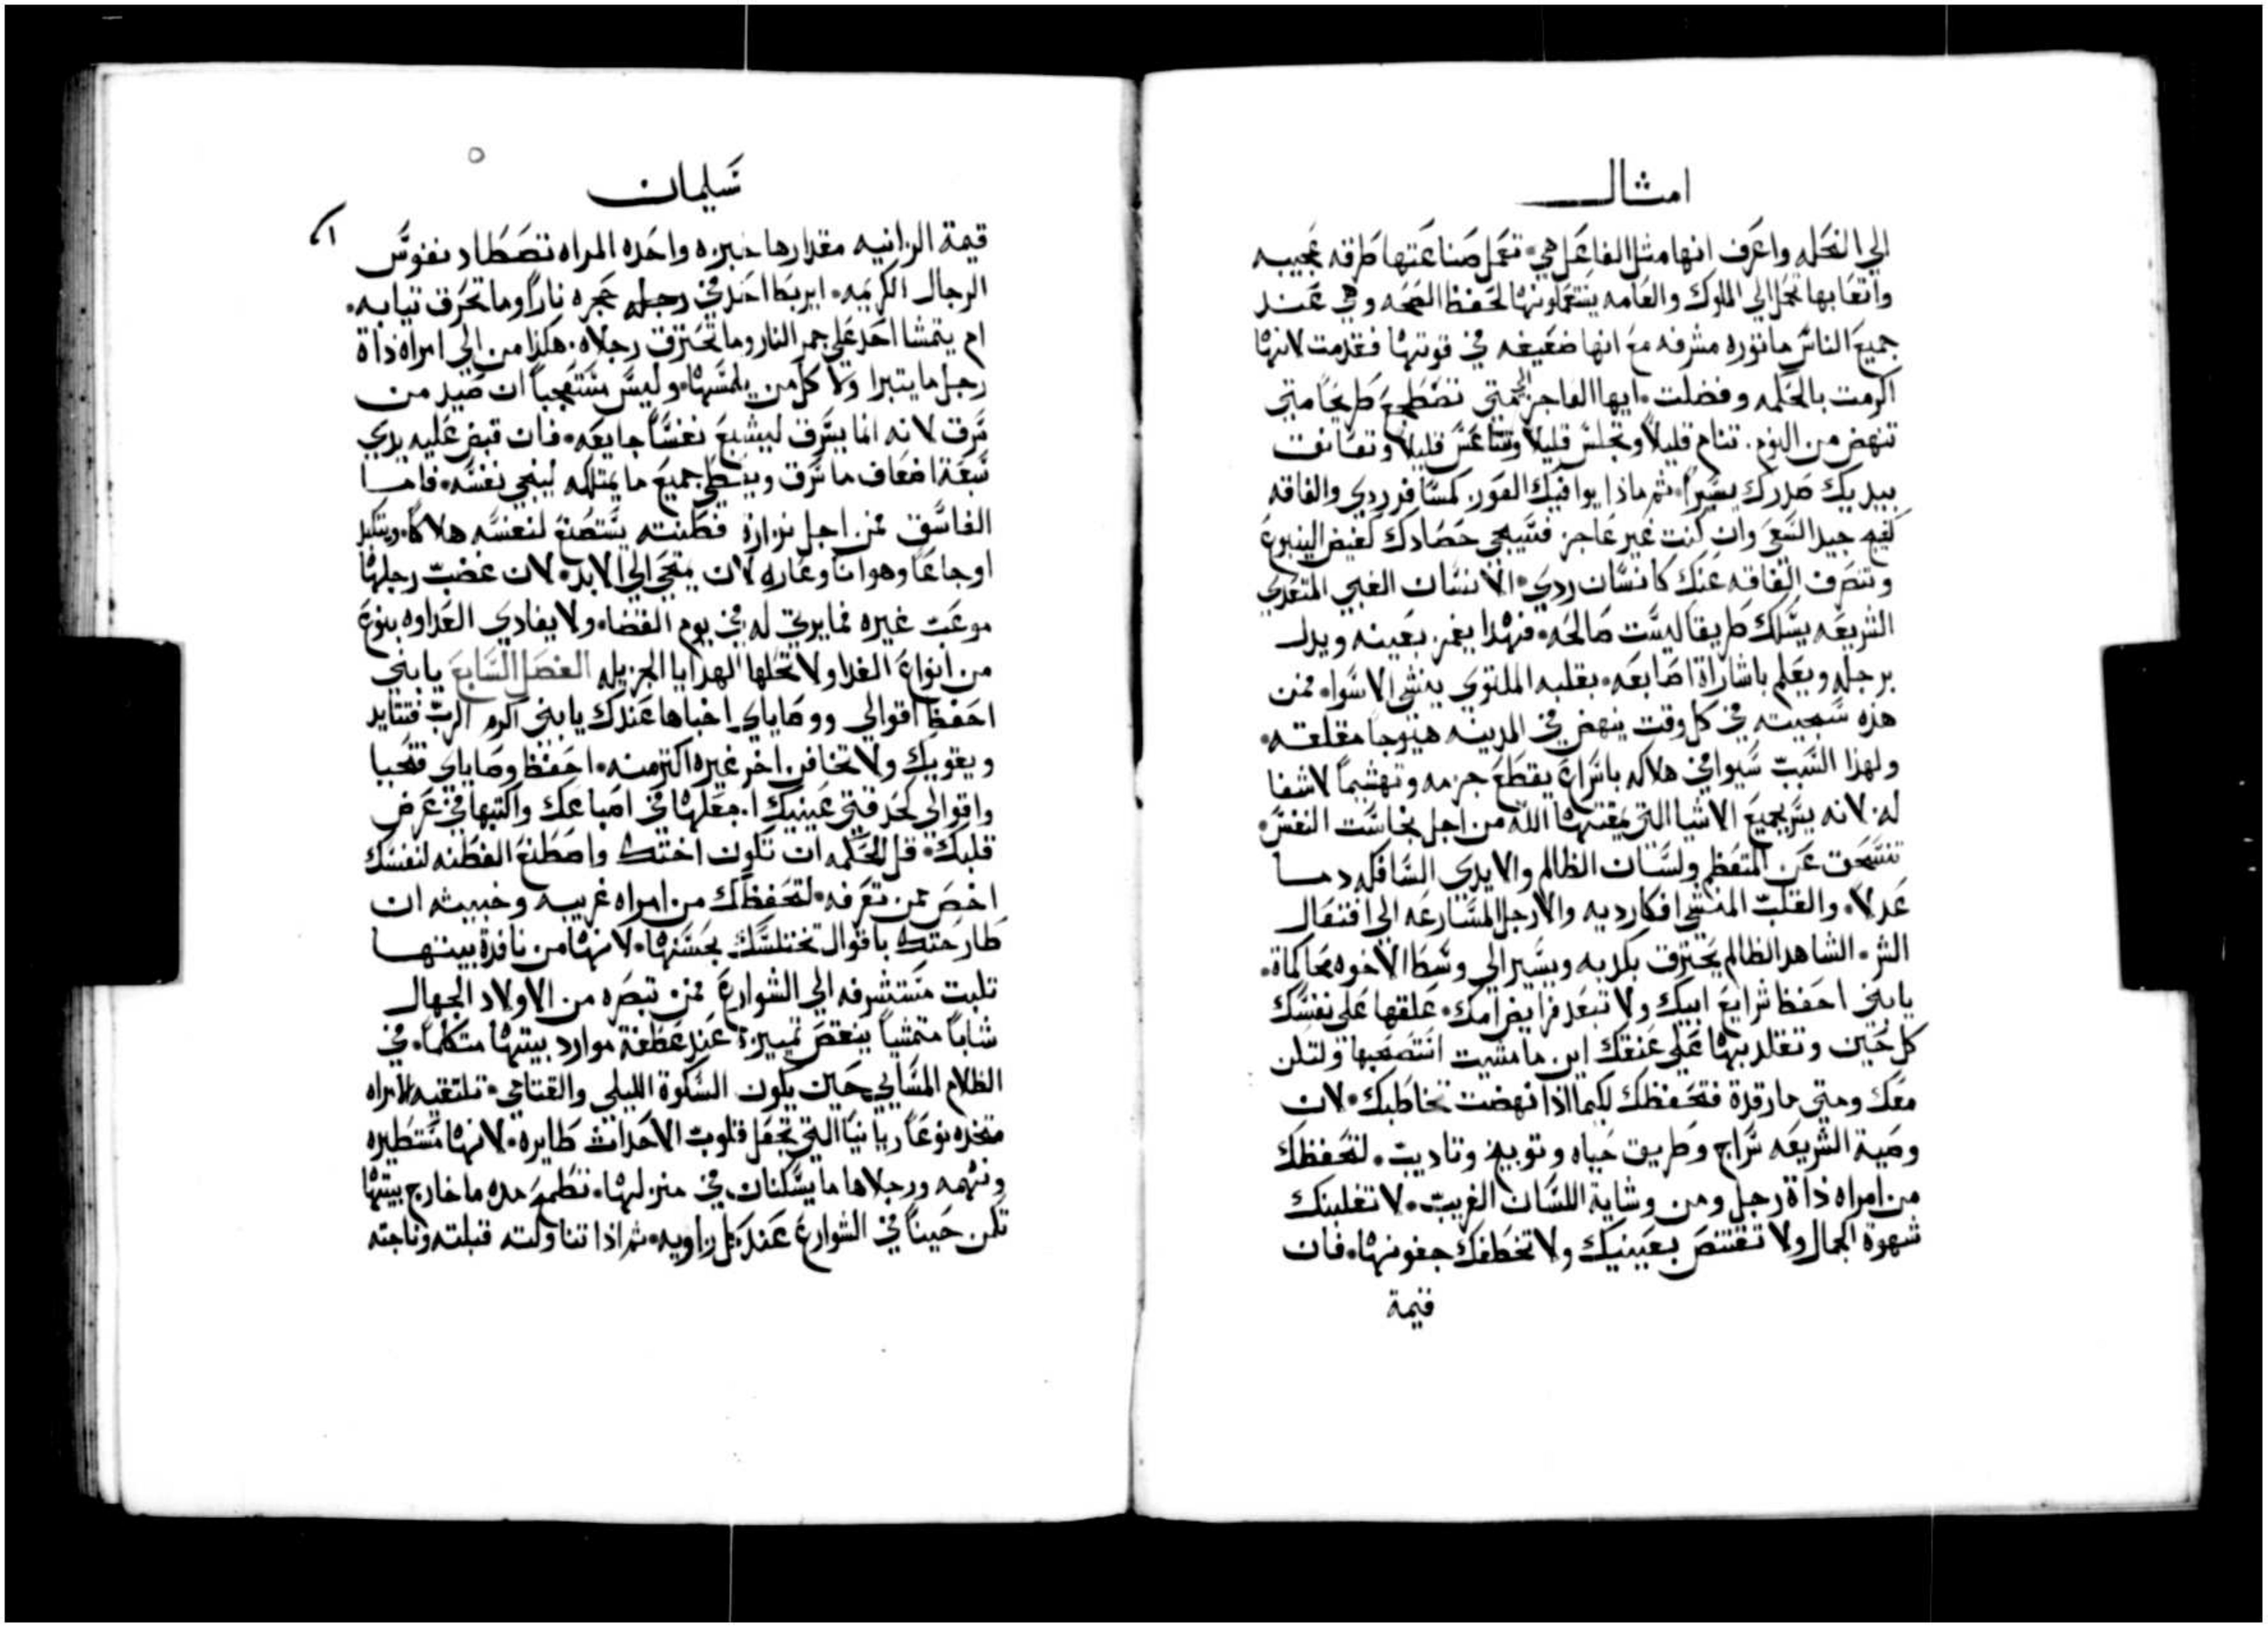 امثال
الي النحله واعرف انها مثل الفاعل هي. تعمل صناعتها طرفه عجيبه
واتعابها تحمل الي الملوك والعامه يستعملونها لحفظ الصحه وهي عند
جميع الناس ماثوره مشرفه مع انها ضعيفه في قوتها فقدمت لانها
اكرمت بالحكمه وفضلت. ايها العاجز الي متي تضطجع طريحا متي
تنهض من النوم. تنام قليلا وتجلس قليلا وتتناعس قليلا وتعانق
بيديك صدرك يسيرا. ثم ماذا يوافيك العوز كمسافر ردي والفاقه
كفيج جيد السعي وان كنت غير عاجز فسيجي حصادك كفيض الينبوع
وتنصرف الفاقه عنك كانسان ردي. الانسان الغبي المتعدي
الشريعه يسلك طريقا ليست صالحه. فهذا يغمز بعينه ويدل
برجله ويعلم باشاراة اصابعه. بقلبه الملتوي ينشي الاسوا. فمن
هذه سجيته في كل وقت ينهض في المدينه هيوجا مقلقه.
ولهذا السبب سيوافي هلاكه باسراع يقطع جزمه وتهشيما لاشفا
له. لانه يسر بجميع الاشيا التي يمقتها الله من اجل نجاست النفس.
تفسحت عين المتعظم ولسان الظالم والايدي السافكه دما
عدلا. والقلب المنشي افكار رديه والارجل المسارعه الي افتعال
الشر. الشاهد الظالم يحترق بكذبه ويسير الي وسط الاخوه محاكماة.
يا بني احفظ شرايع ابيك ولا تبعد فرايض امك. علقها علي نفسك
كل حين وتقلد بها علي عنقك اين ما مشيت استصحبها ولتكن
معك ومتي ما رقدة فتحفظك لكيما اذا نهضت تخاطبك. لان
وصية الشريعه سراج وطريق حياه وتوبيخ وتاديب. لتحفظك
من امراه ذاة رجل ومن وشاية اللسان الغريب. لا تغلبنك
شهوة الجمال ولا تقتنص بعينيك ولا تخطفك جفونها. فان
قيمة
سليمان
قيمة الزانيه مقدارها خبزه واحده المراه تصطاد نفوس
الرجال الكريمه. ايربط احد في رجله حجره نارا وما تحرق تيابه.
ام يتمشا احد علي جمر النار وما تحترق رجلاه. هكذا من الي امراه ذاة
رجل ما يتبرا ولا كل من يلمسها. وليس مستعجبا ان صيد من
سرق لانه انما يسرق ليشبع نفسا جايعه. فان قبض عليه يدي
سبعة اضعاف ما سرق ويعطي جميع ما يمتلكه لينجي نفسه. فاما
الفاسق فمن اجل نزارة فطنته يستصنع لنفسه هلاكا. ويتكبد
اوجاعا وهوانا وعاره لان يمتحي الي الابد. لان غضب رجلها
موعب غيره فما يرتي له في يوم القضا. ولا يفادي العداوه بنوع
من انواع الفدا ولا تحلها الهدايا الجزيله الفصل السابع يا بني
احفظ اقوالي ووصاياي اخباها عندك يا بني اكرم الرب فتتايد
ويقويك ولا تخافن اخر غيره اكتر منه. احفظ وصاياي فتحيا
واقوالي كحدقتي عينيك. اجعلها في اصباعك واكتبها في عرض
قلبك. قل للحكمه ان تكون اختك واصطنع الفطنه لنفسك
اخص ممن تعرفه. لتحفظك من امراه غريبه وخبيثه ان
طارحتك باقوال تختلسك بحسنها. لانها من نافذة بيتها
تلبت مستشرفه الي الشوارع فمن تبصره من الاولاد الجهال
شابا متمشيا ينقص تمييزه عند عطفة موارد بيتها متكلما. في
الظلام المسايي حين يكون السكوة الليلي والقتامي. تلتقيه الامراه
متخذه نوعا ريانيا التي تجعل قلوب الاحداث طايره. لانها مستطيره
ونهمه ورجلاها ما يسكنان في منزلها. تطمح مده ما خارج بيتها
تكمن حينا في الشوارع عند كل زاويه. ثم اذا تناولته قبلته وناجته